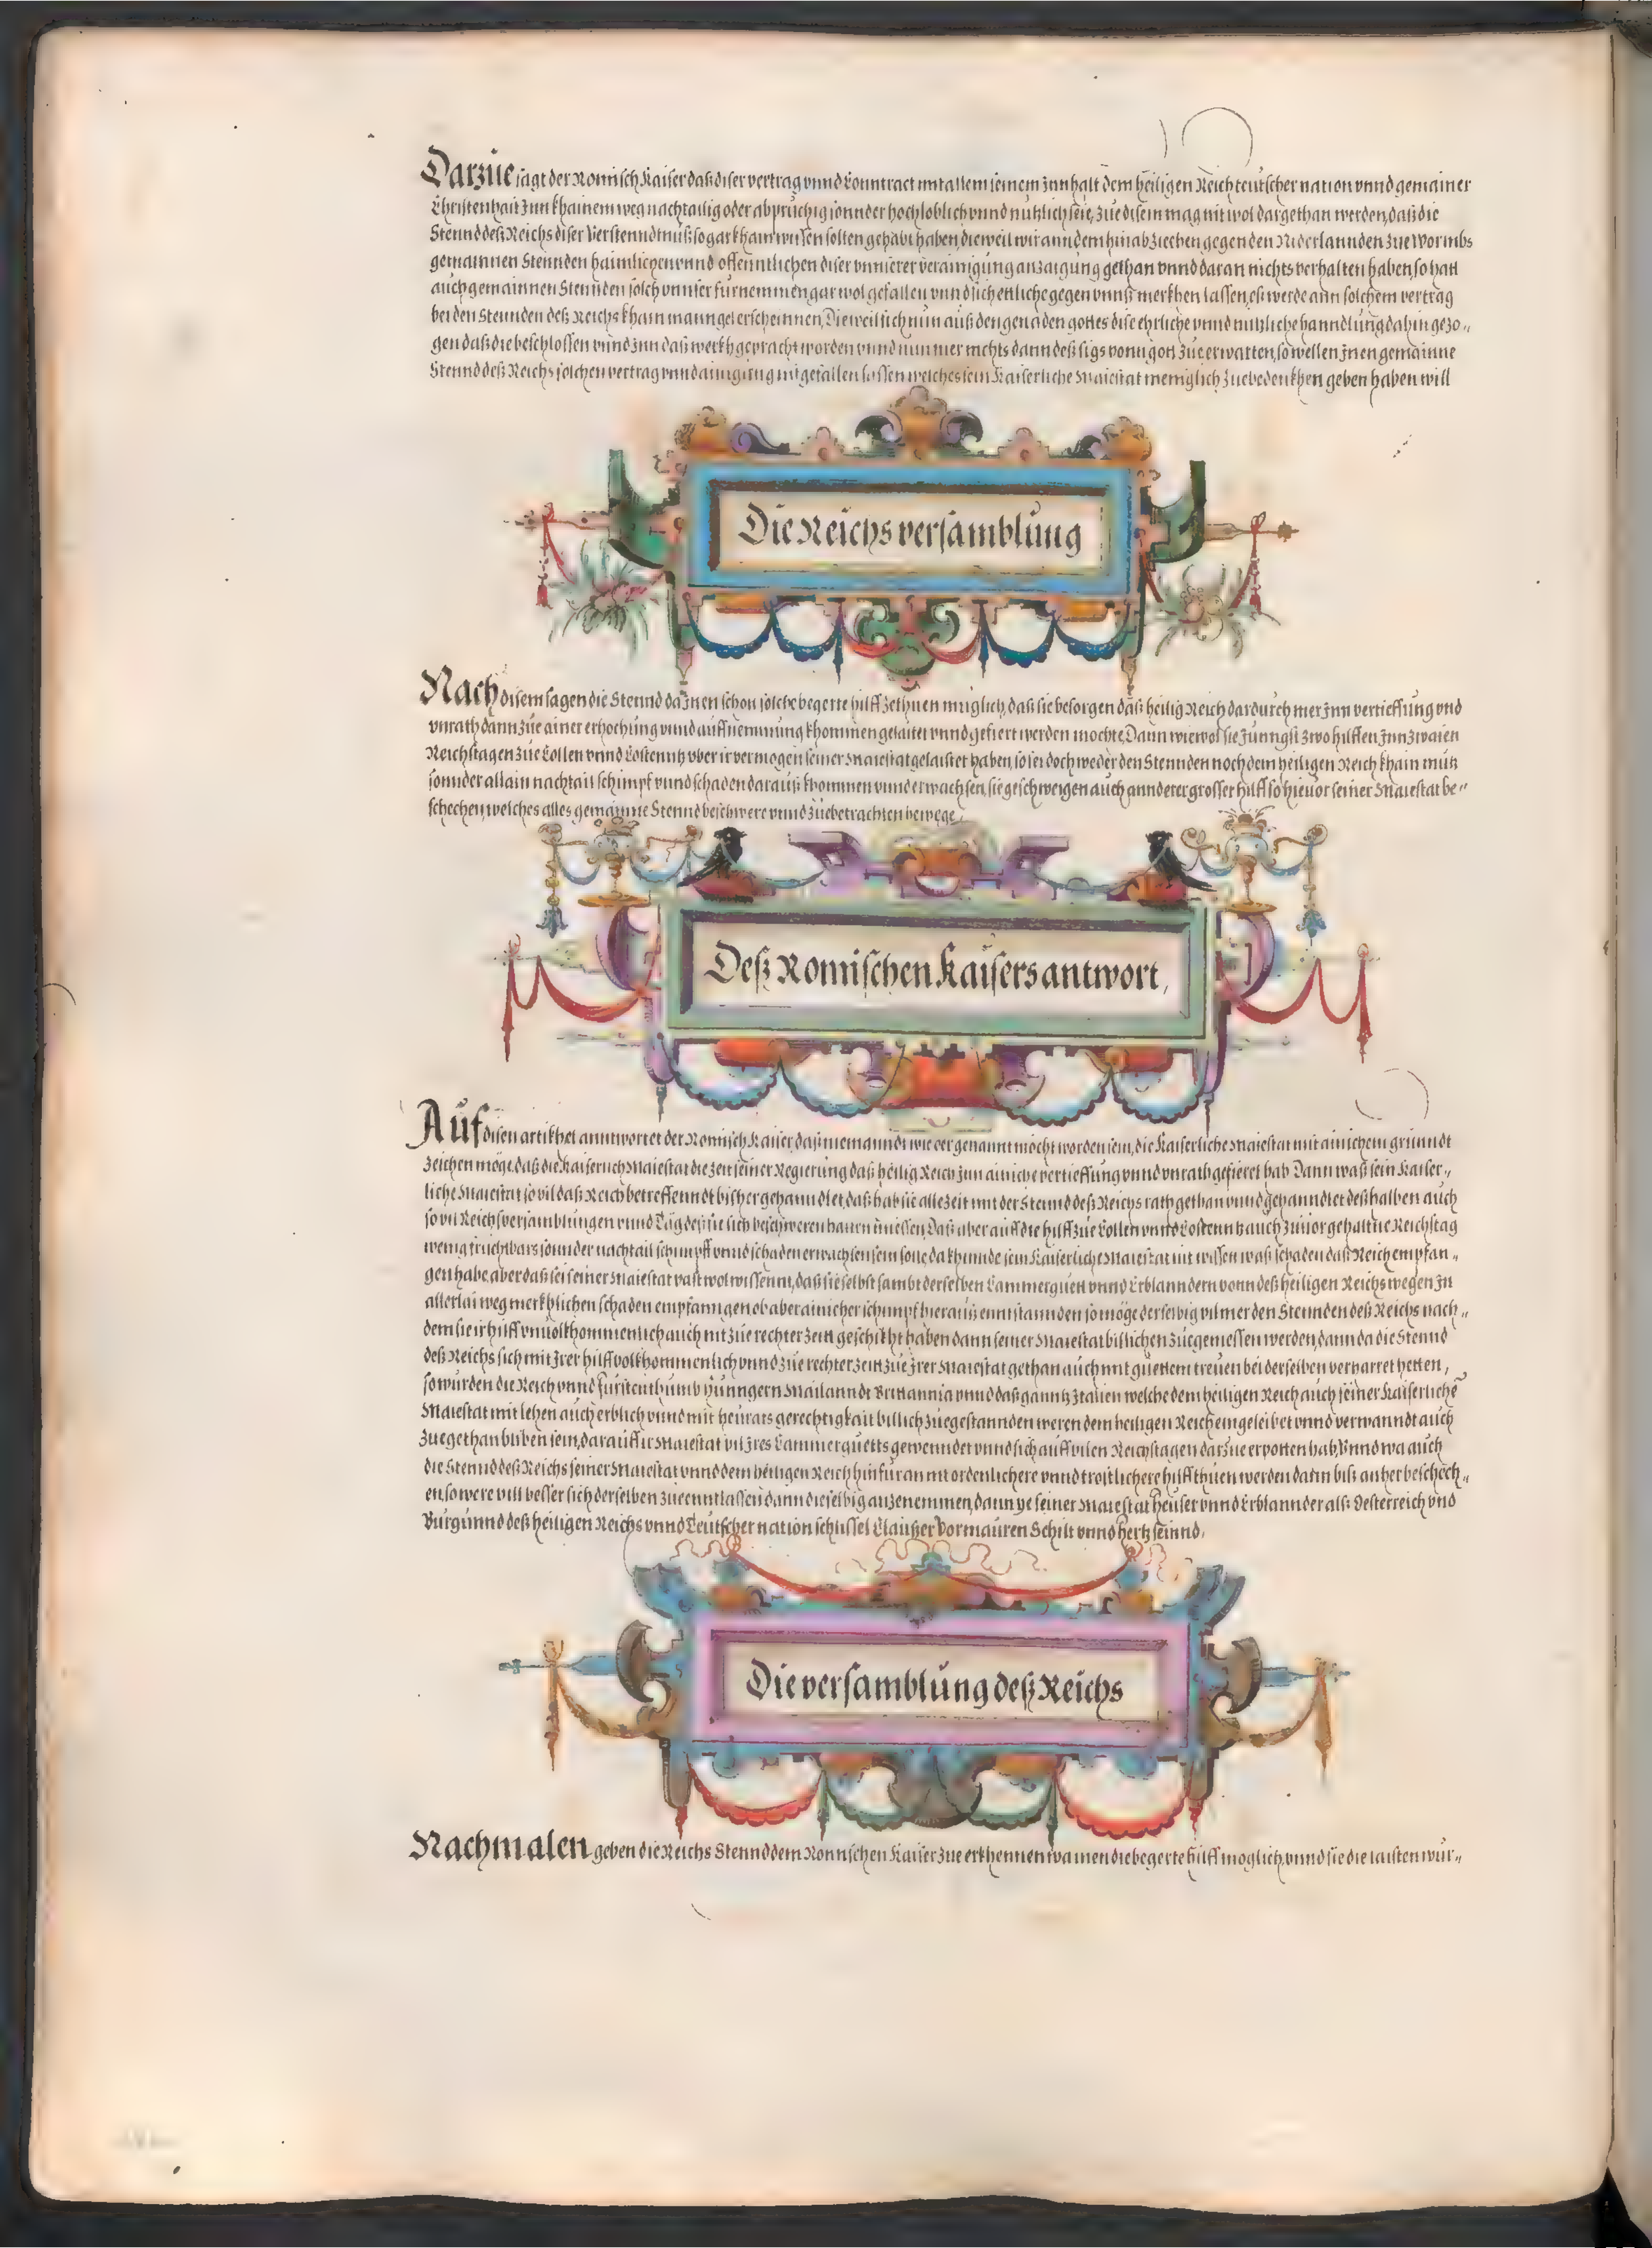 Darzue sagt der Romisch Kaiser daß diser vertrag vnnd Conntract mit allem seinem Innhalt dem heiligen Reich teutscher nation vnnd gemainer
Christenhait Inn khainem weg nachtailig oder abpruchig sonnder hochloblich vnnd nutzlich seie, zue disem mag nit wol dargethan werden, daß die
Stennd deß Reichs diser Verstenndtnuß so gar khain wissen solten gehabt haben, dieweil wir ann dem hinabziechen gegen den Niderlannden zue Wormbs
gemainnen Stennden haimlichen vnnd offenntlichen diser vnnserer verainigung anzaigung gethan vnnd daran nichts verhalten haben, so hatt
auch gemainnen Stennden solch vnnser furnemmen gar wol gefallen vnnd sich ettliche gegen vnnß merkhen lassen, es werde ann solchem vertrag
bei den Stennden deß Reichs khain manngel erscheinnen, Dieweil sich nun auß den genaden gottes dise ehrliche vnnd nutzliche hanndlung dahin gezo„
gen daß die beschlossen vnnd Inn daß werkh gepracht worden vnnd nun mer nichts dann deß sigs vonn gott zue erwarten, so wellen Inen gemainne
Stennd deß Reichs solchen vertrag vnnd ainigung mitgefallen lassen welches sein Kaiserliche Maiestat meniglich zue bedenkhen geben haben will
Die Reichs versamblung
Nach disem sagen die Stennd da Inen schon solche begerte hilff zethuen muglich, daß sie besorgen daß heilig Reich dardurch mer Inn vertieffung vnd
vnrath dann zue ainer erhochung vnnd auffnemmung khommen gelaitet vnnd gefiert werden mochte, Dann wiewol sie Junngst zwo hilffen Inn zwaien
Reichstagen zue Collen vnnd Costenntz vber ir vermogen seiner Maiestat gelaistet haben, so sei doch weder den Stennden noch dem heiligen Reich khain nutz
sonnder allain nachtail schimpf vnnd schaden darauß khommen vnnd erwachsen, sie geschweigen auch annderer grosser hilff so hieuor seiner Maiestat be„
schechen, welches alles gemainne Stennd beschwere vnnd zue betrachten bewege,
Deß Romischen Kaisers antwort,
Auf disen artikhel anntwortet der Romisch Kaiser, daß niemanndt wie er genannt mocht worden sein, die Kaiserliche Maiestat mit ainichem grunndt
zeichen moge, daß die Kaiserlich Maiestat die zeit seiner Regierung daß heilig Reich Inn ainiche vertieffung vnnd vnrath gefieret hab Dann waß sein Kaiser„
liche Maiestat so vil daß Reich betreffenndt bisher gehanndlet, daß hab sie allezeit mit der Stennd deß Reichs rath gethan vnnd gehanndlet deßhalben auch
so vil Reichsversamblungen vnnd Tåg deß sie sich beschweren haltten muessen, Daß aber auff die hilff zue Collen vnnd Costenntz auch zuuor gehaltne Reichstag
wenig fruchtbars sonnder nachtail schimpff vnnd schaden erwachsen sein solle, da khunde sein Kaiserliche Maiestat nit wissen waß schaden daß Reich empfan„
gen habe, aber daß sei seiner Maiestat vast wol wissennt, daß sie selbst sambt derselben Cammerguett vnnd Erblanndern vonn deß heiligen Reichs wegen In
allerlai weg merkhlichen schaden empfanngen ob aber ainicher schimpf hierauß enntstannden so möge derselbig vil mer den Stennden deß Reichs nach„
dem sie ir hilff vnuolkhommenlich auch nit zue rechter zeitt geschikht haben dann seiner Maiestat billichen zuegemessen werden, dann da die Stennd
deß Reichs sich mit Irer hilff volkhommenlich vnnd zue rechter zeitt zue Irer Maiestat gethan auch mit guettem treuen bei derselben verharret hetten,
so wurden die Reich vnnd Furstenthumb Hunngern Mailanndt Brittannia vnnd daß ganntz Italien welche dem heiligen Reich auch seiner Kaiserliche
Maiestat mit lehen auch erblich vnnd mit heurats gerechtigkait billich zuegestannden weren dem heiligen Reich eingeleibet vnnd verwanndt auch
zuegethan bliben sein, darauff ir Maiestat vil Ires Cammerguetts gewenndet vnnd sich auff vilen Reichstagen darzue erpotten hab, Vnnd wa auch
die Stennd deß Reichs seiner Maiestat vnnd dem heiligen Reich hinfuran nit ordenlichere vnnd trostlichere hilff thuen werden dann biß anher beschech„
en, so were vill besser sich derselben zue enntlassen dann dieselbig anzenemmen, dann ye seiner Maiestat Heuser vnnd Erblannder alß Osterreich vnd
Burgunnd deß heiligen Reichs vnnd Teutscher nation schlussel Claußer Vormauren Schilt vnnd hertz seinnd,
Die versamblung deß Reichs
Nachmalen geben die Reichs Stennd dem Romischen Kaiser zue erkhennen wa inen die begerte hilff moglich, vnnd sie die laisten wur„